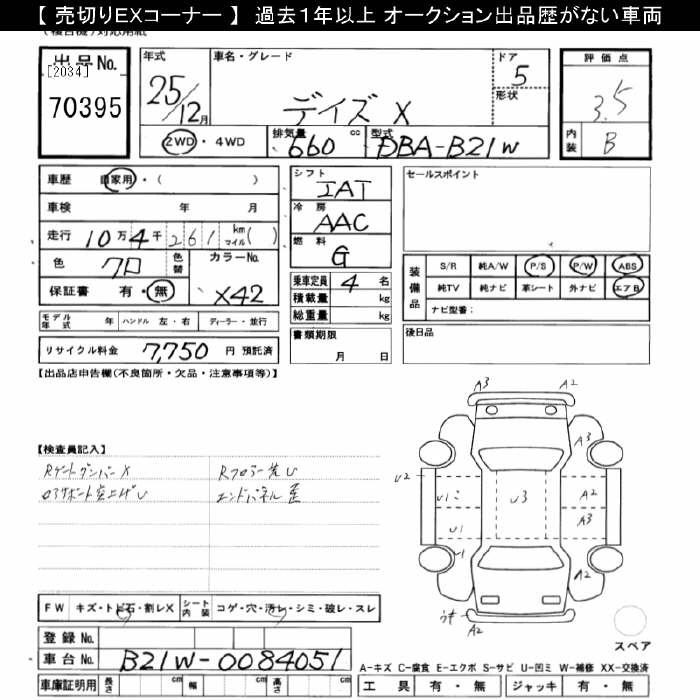 【 売切りEXコーナー 】 過去１年以上 オークション出品歴がない車両
出品No.
[2034]
70395
年式
25/12月
車名・グレード
デイズ X
ドア
5
形状
評価点
3.5
内装
B
2WD・4WD
排気量 660 cc
型式 DBA-B21W
車歴 自家用・( )
車検 年 月
走行 10万4千261 km マイル( )
色 クロ 色替
カラーNo. X42
保証書 有・無
シフト
IAT
冷房
AAC
燃料
G
乗車定員 4 名
積載量 kg
総重量 kg
書類期限
月 日
セールスポイント
装備品
S/R 純A/W P/S P/W ABS
純TV 純ナビ 革シート 外ナビ エアB
ナビ型番：
後日品
モデル年式 年 ハンドル 左・右 ディーラー・並行
リサイクル料金 7,750 円 預託済
【出品店申告欄(不良箇所・欠品・注意事項等)】
【検査員記入】
RゲートダンパーX
Rフロアー先U
コアサポート突上げU
エンドパネル歪
A3 A2
A3
U2 U1 U3 A2
A3
U1
U1
A2 A2
A2
スペア
FW キズ・トビ石・割レX シート内装 コゲ・穴・汚レ・シミ・破レ・スレ
登録No.
車台No. B21W-0084051
車庫証明用 長さ cm 幅 cm 高さ cm
A-キズ C-腐食 E-エクボ S-サビ U-凹ミ W-補修 XX-交換済
工具 有・無 ジャッキ 有・無